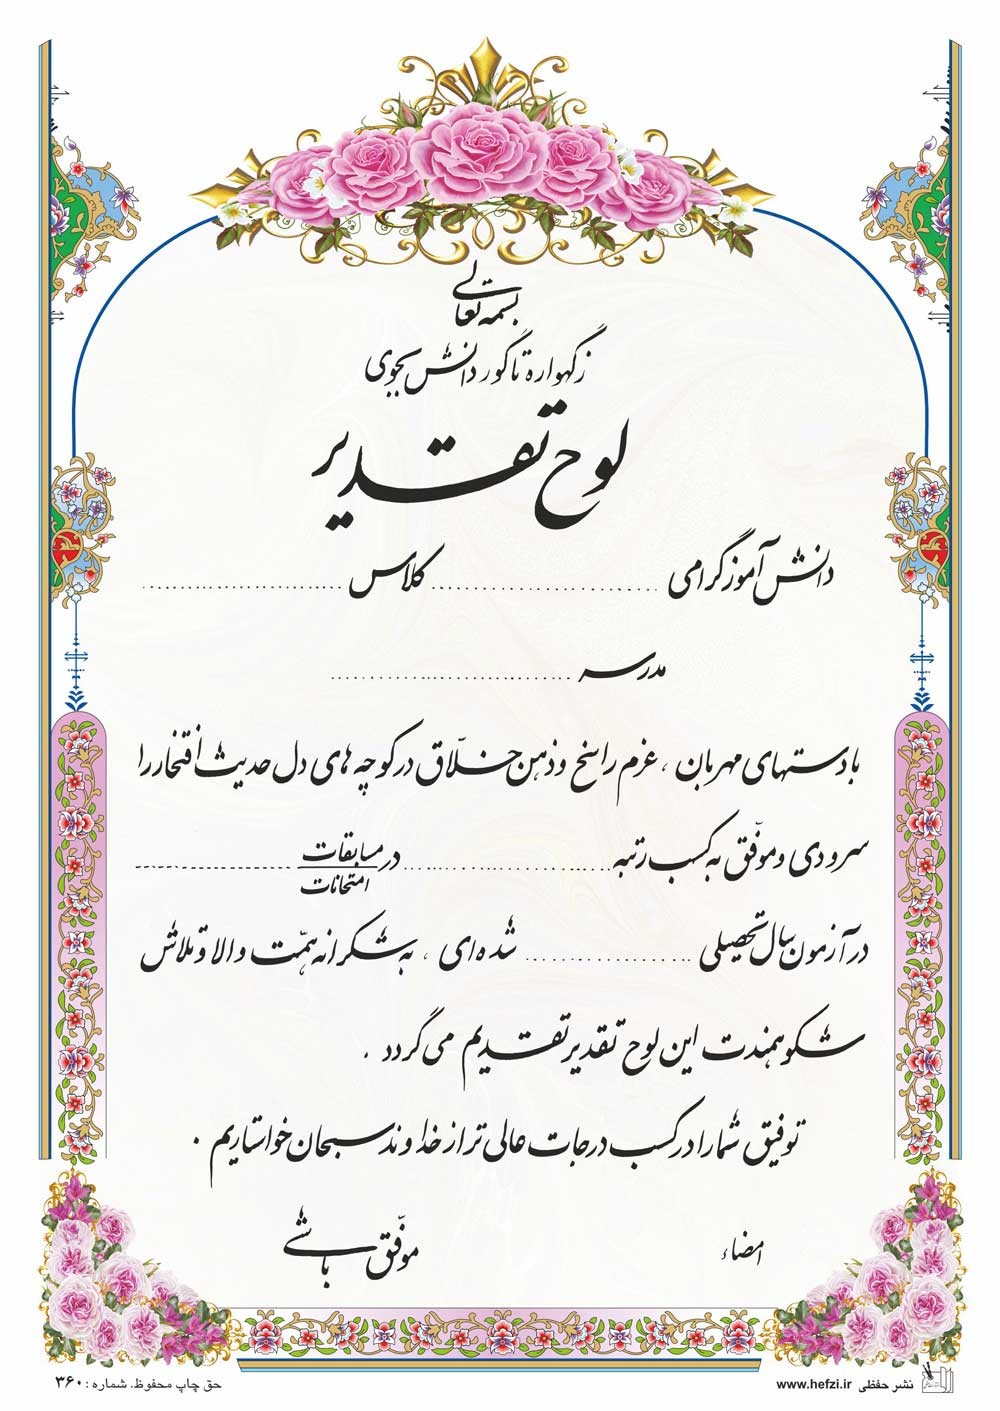 بسمه تعالی
ز گهواره تا گور دانش بجوی
لوح تقدیر
دانش آموز گرامی .......................... کلاس ....................
مدرسه ........................
با دستهای مهربان ، عزم راسخ و ذهن خلّاق در کوچه های دل حدیث افتخار را
سرودی و موفّق به کسب رتبه .................... در مسابقات / امتحانات --------------------
در آزمون سال تحصیلی .................... شده ای ، به شکرانه همّت والا و تلاش
شکوهمندت این لوح تقدیر تقدیم می گردد .
توفیق شما را در کسب درجات عالی تر از خداوند سبحان خواستاریم .
امضاء
موفّق باشی
نشر حفظی www.hefzi.ir
حق چاپ محفوظ. شماره : ۳۶۰